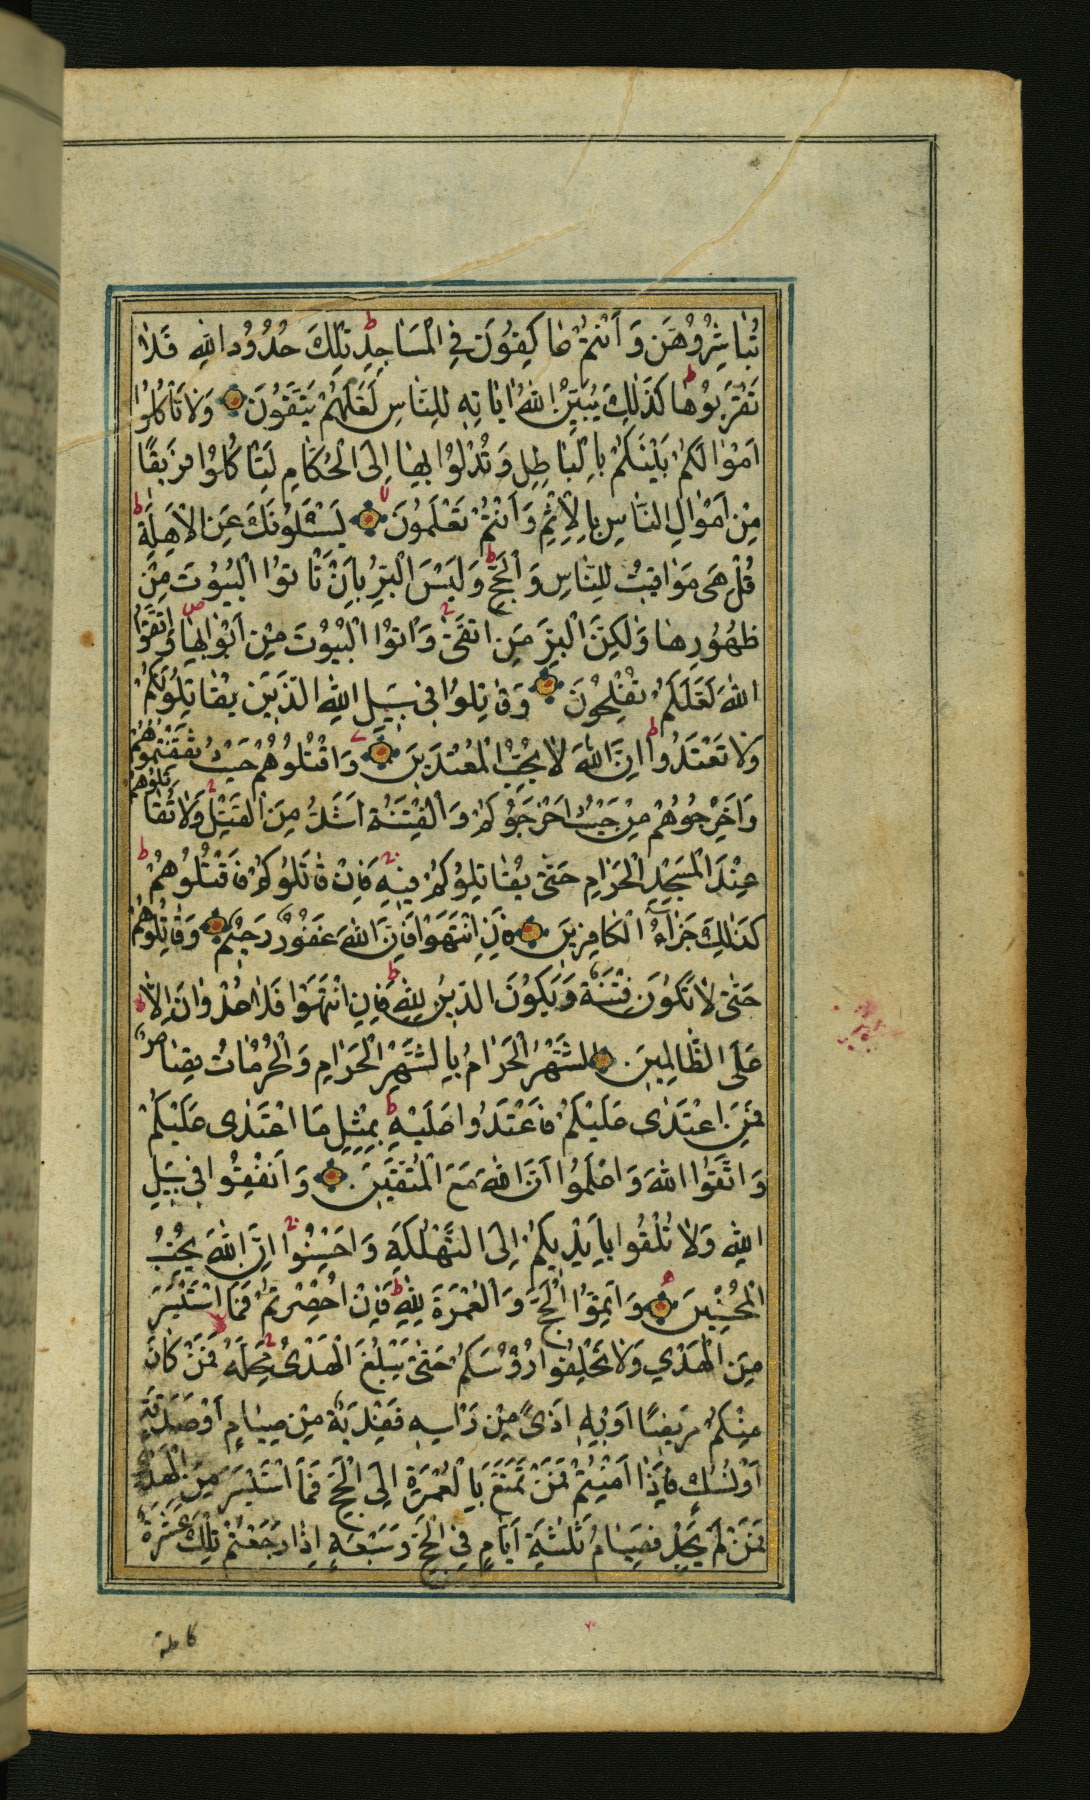 تُبَاشِرُوهُنَّ وَاَنْتُمْ عَاكِفُونَ فِي الْمَسَاجِدِ ط تِلْكَ حُدُودُ اللهِ فَلَا
تَقْرَبُوهَا ط كَذٰلِكَ يُبَيِّنُ اللهُ اٰيَاتِهِ لِلنَّاسِ لَعَلَّهُمْ يَتَّقُونَ وَلَا تَأْكُلُوا
اَمْوَالَكُمْ بَيْنَكُمْ بِالْبَاطِلِ وَتُدْلُوا بِهَا اِلَى الْحُكَّامِ لِتَأْكُلُوا فَرِيقًا
مِنْ اَمْوَالِ النَّاسِ بِالْاِثْمِ وَاَنْتُمْ تَعْلَمُونَ يَسْئَلُونَكَ عَنِ الْاَهِلَّةِ ط
قُلْ هِيَ مَوَاقِيتُ لِلنَّاسِ وَالْحَجِّ ط وَلَيْسَ الْبِرُّ بِاَنْ تَأْتُوا الْبُيُوتَ مِنْ
ظُهُورِهَا وَلٰكِنَّ الْبِرَّ مَنِ اتَّقٰى وَأْتُوا الْبُيُوتَ مِنْ اَبْوَابِهَا ص وَاتَّقُوا
اللهَ لَعَلَّكُمْ تُفْلِحُونَ وَقَاتِلُوا فِي سَبِيلِ اللهِ الَّذِينَ يُقَاتِلُونَكُمْ
وَلَا تَعْتَدُوا ط اِنَّ اللهَ لَا يُحِبُّ الْمُعْتَدِينَ وَاقْتُلُوهُمْ حَيْثُ ثَقِفْتُمُوهُمْ
وَاَخْرِجُوهُمْ مِنْ حَيْثُ اَخْرَجُوكُمْ وَالْفِتْنَةُ اَشَدُّ مِنَ الْقَتْلِ وَلَا تُقَاتِلُوهُمْ
عِنْدَ الْمَسْجِدِ الْحَرَامِ حَتّٰى يُقَاتِلُوكُمْ فِيهِ فَاِنْ قَاتَلُوكُمْ فَاقْتُلُوهُمْ ط
كَذٰلِكَ جَزَاءُ الْكَافِرِينَ فَاِنِ انْتَهَوْا فَاِنَّ اللهَ غَفُورٌ رَحِيمٌ وَقَاتِلُوهُمْ
حَتّٰى لَا تَكُونَ فِتْنَةٌ وَيَكُونَ الدِّينُ لِلّٰهِ ط فَاِنِ انْتَهَوْا فَلَا عُدْوَانَ اِلَّا
عَلَى الظَّالِمِينَ الشَّهْرُ الْحَرَامُ بِالشَّهْرِ الْحَرَامِ وَالْحُرُمَاتُ قِصَاصٌ
فَمَنِ اعْتَدٰى عَلَيْكُمْ فَاعْتَدُوا عَلَيْهِ بِمِثْلِ مَا اعْتَدٰى عَلَيْكُمْ
وَاتَّقُوا اللهَ وَاعْلَمُوا اَنَّ اللهَ مَعَ الْمُتَّقِينَ وَاَنْفِقُوا فِي سَبِيلِ
اللهِ وَلَا تُلْقُوا بِاَيْدِيكُمْ اِلَى التَّهْلُكَةِ وَاَحْسِنُوا اِنَّ اللهَ يُحِبُّ
الْمُحْسِنِينَ وَاَتِمُّوا الْحَجَّ وَالْعُمْرَةَ لِلّٰهِ ط فَاِنْ اُحْصِرْتُمْ فَمَا اسْتَيْسَرَ
مِنَ الْهَدْيِ وَلَا تَحْلِقُوا رُؤُسَكُمْ حَتّٰى يَبْلُغَ الْهَدْيُ مَحِلَّهُ فَمَنْ كَانَ
مِنْكُمْ مَرِيضًا اَوْ بِهِ اَذًى مِنْ رَاْسِهِ فَفِدْيَةٌ مِنْ صِيَامٍ اَوْ صَدَقَةٍ
اَوْ نُسُكٍ فَاِذَا اَمِنْتُمْ فَمَنْ تَمَتَّعَ بِالْعُمْرَةِ اِلَى الْحَجِّ فَمَا اسْتَيْسَرَ مِنَ الْهَدْيِ
فَمَنْ لَمْ يَجِدْ فَصِيَامُ ثَلٰثَةِ اَيَّامٍ فِي الْحَجِّ وَسَبْعَةٍ اِذَا رَجَعْتُمْ تِلْكَ عَشَرَةٌ
كاملة